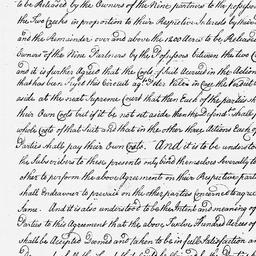 to be Released by the Owners of the Nine partners to the
the Two Creeks in proportion to their Respective Interests by their
and the Remainder over and above the 1200 Acres to be Released
owners of the Nine Partners by the Possessors between the two C
and it is further Agreed that the Costs of Suit Accrued in the Action
that has been Try'd the Circuit ag.t Peter Valen in Case the Verdict
side at the next Supreme Court that then Each of the parties sh
their Own Costs but if it be not set aside then the Defend.t shall p
whole Costs of that Suit and that in the other three Actions Each of
Parties shall pay their Own Costs. And it is to be underst
the Subscribers to these presents only bind themselves Severally to
other to perform the above Agreements on their Respective part
shall Endeavor to prevail on the other parties Concerned to agree
same. And it is also understood to be the Intent and meaning of
Parties to this Agreement that the above Twelve Hundred Acres of
shall be Accepted Deemed and taken to be in full Satisfaction an